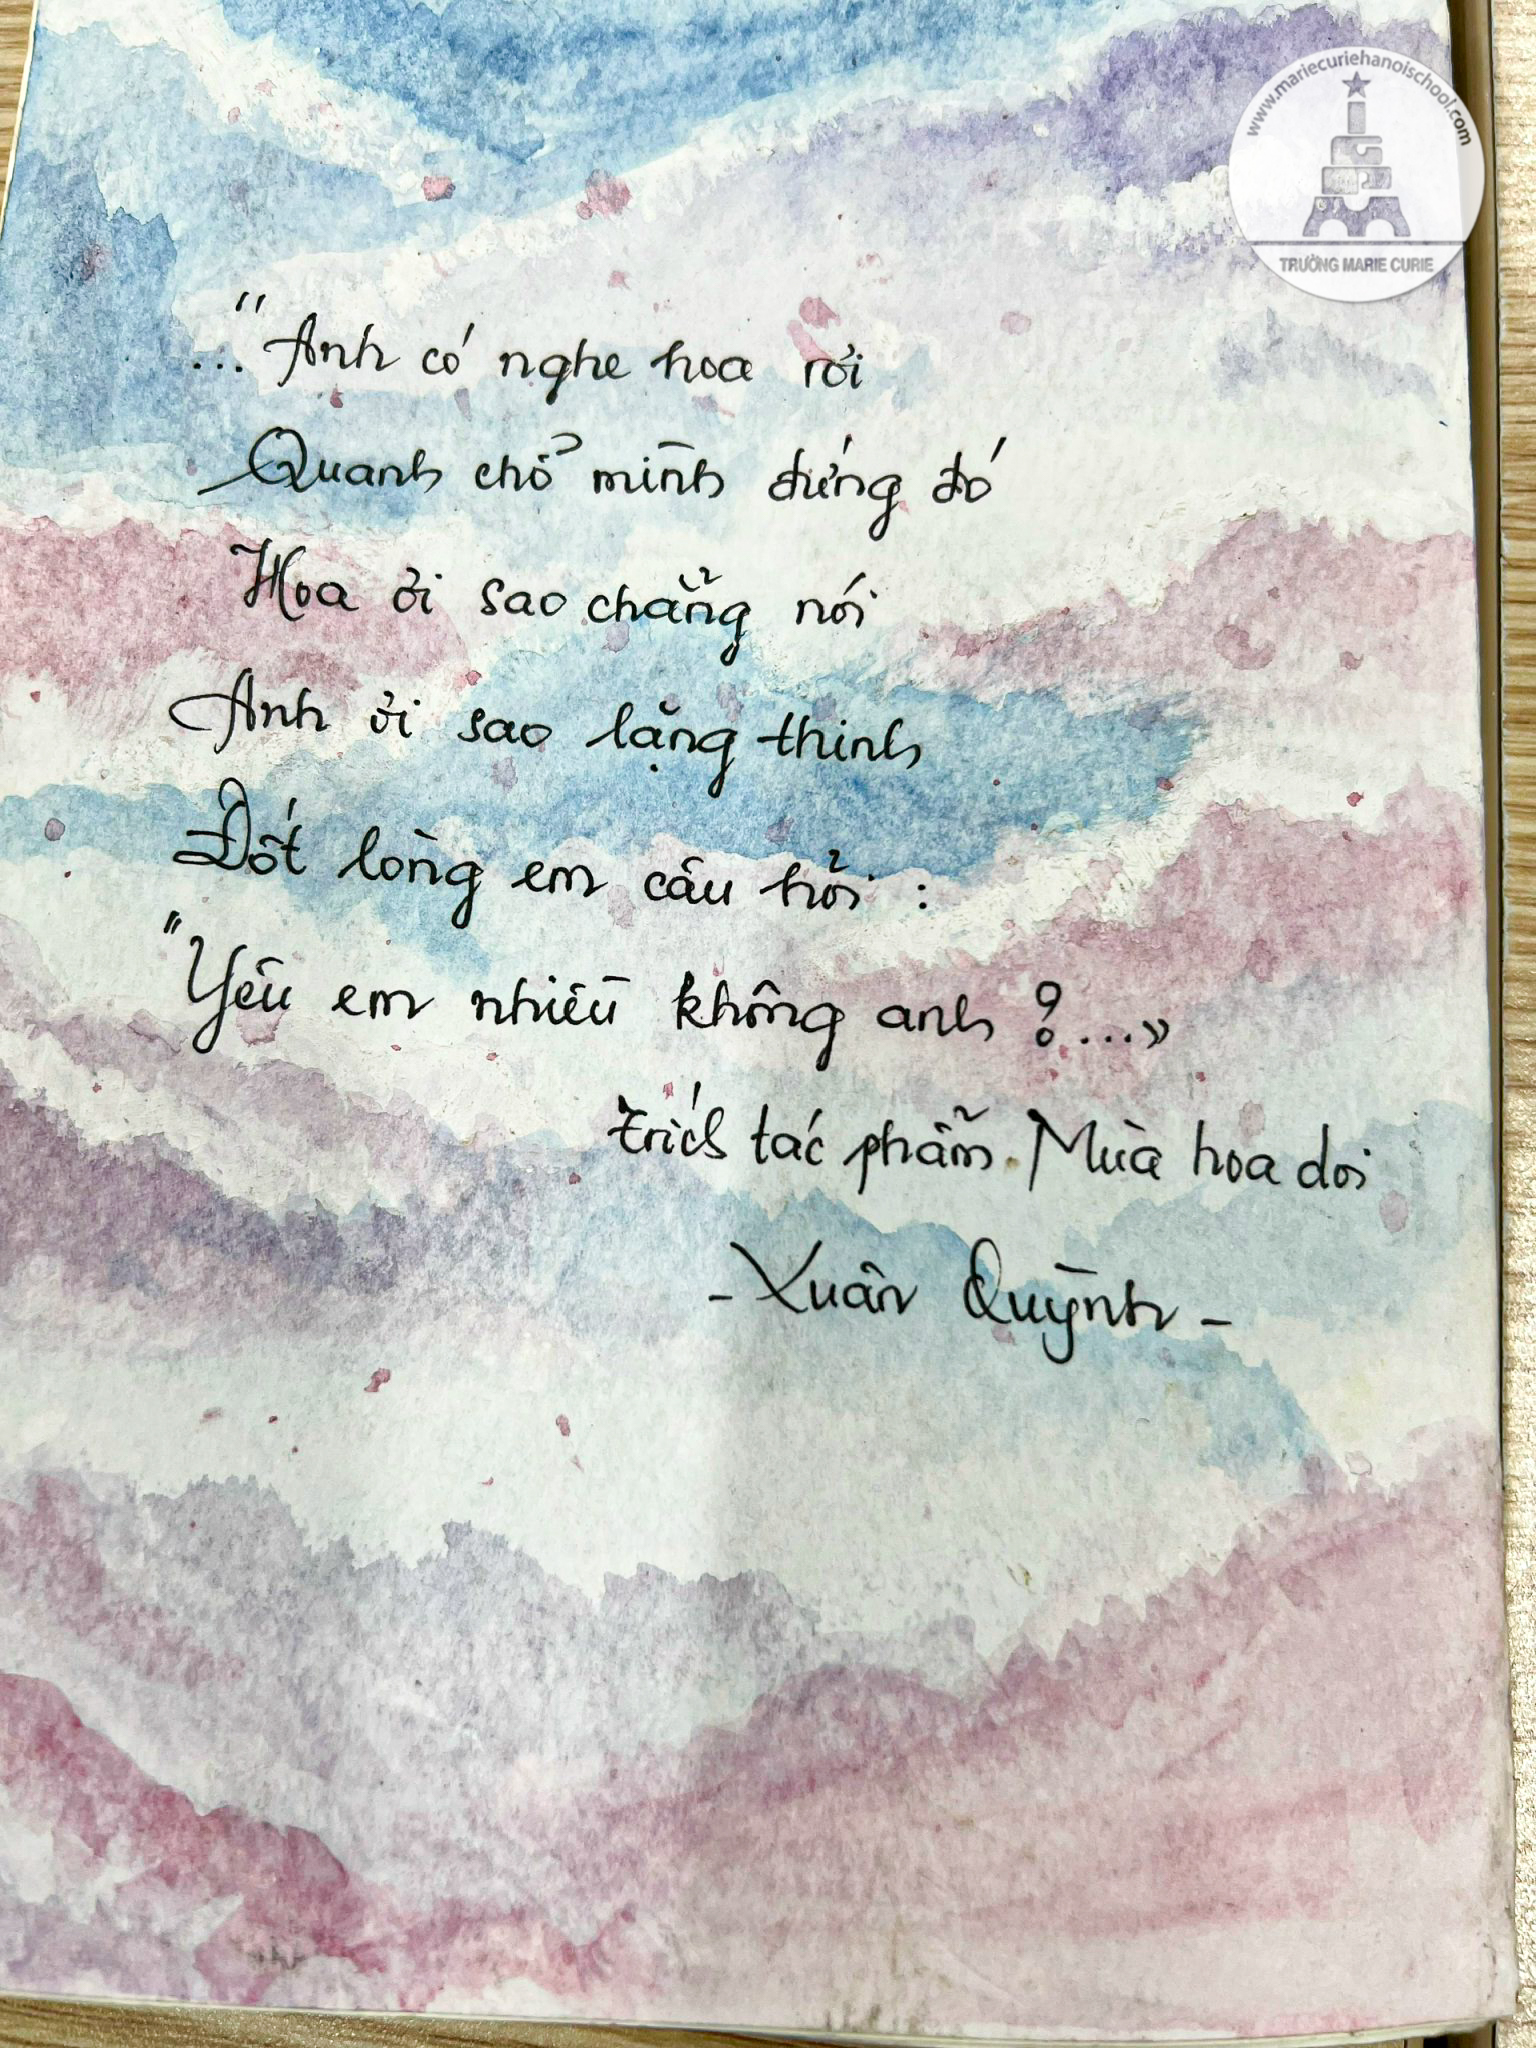 www.mariecuriehanoischool.com
TRƯỜNG MARIE CURIE
..."Anh có nghe hoa rơi
Quanh chỗ mình đứng đó
Hoa ơi sao chẳng nói
Anh ơi sao lặng thinh
Đốt lòng em câu hỏi :
"Yêu em nhiều không anh ?...»
Trích tác phẩm. Mùa hoa doi
- Xuân Quỳnh -